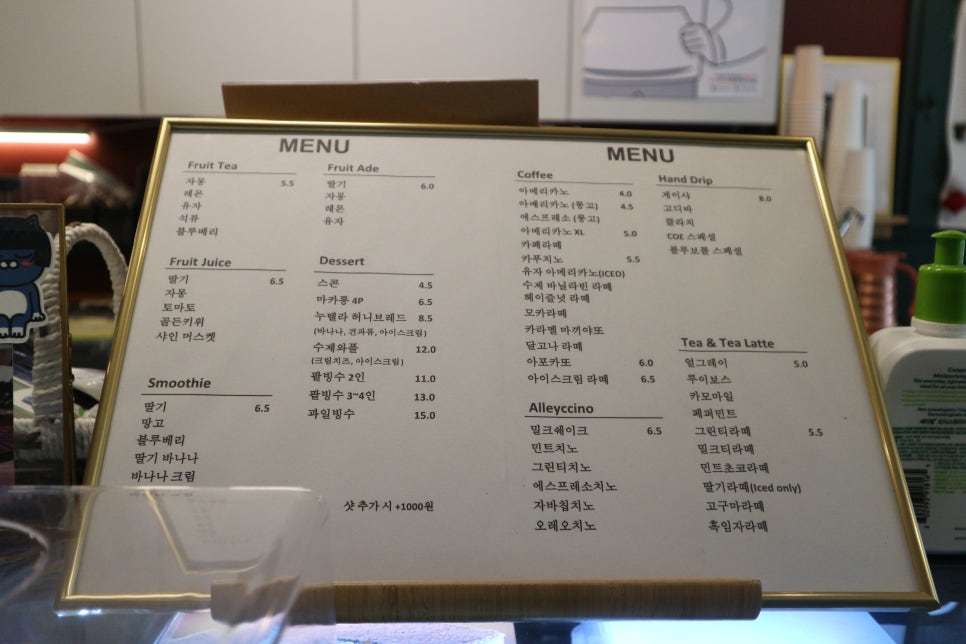 MENU
Fruit Tea
자몽 5.5
레몬
유자
석류
블루베리
Fruit Ade
딸기 6.0
자몽
레몬
유자
Fruit Juice
딸기 6.5
자몽
토마토
골든키위
샤인 머스켓
Dessert
스콘 4.5
마카롱 4P 6.5
누텔라 허니브레드 8.5
(바나나, 견과류, 아이스크림)
수제와플 12.0
(크림치즈, 아이스크림)
팥빙수 2인 11.0
팥빙수 3~4인 13.0
과일빙수 15.0
Smoothie
딸기 6.5
망고
블루베리
딸기 바나나
바나나 크림
샷 추가 시 +1000원
MENU
Coffee
아메리카노 4.0
아메리카노 (풍고) 4.5
에스프레소 (풍고)
아메리카노 XL 5.0
카페라떼
카푸치노 5.5
유자 아메리카노(ICED)
수제 바닐라빈 라떼
헤이즐넛 라떼
모카라떼
카라멜 마끼야또
달고나 라떼
아포카또 6.0
아이스크림 라떼 6.5
Alleyccino
밀크쉐이크 6.5
민트치노
그린티치노
에스프레소치노
자바칩치노
오레오치노
Hand Drip
게이샤 8.0
고디바
콜라치
COE 스페셜
블루보틀 스페셜
Tea & Tea Latte
얼그레이 5.0
루이보스
카모마일
페퍼민트
그린티라떼 5.5
밀크티라떼
민트초코라떼
딸기라떼(Iced only)
고구마라떼
흑임자라떼